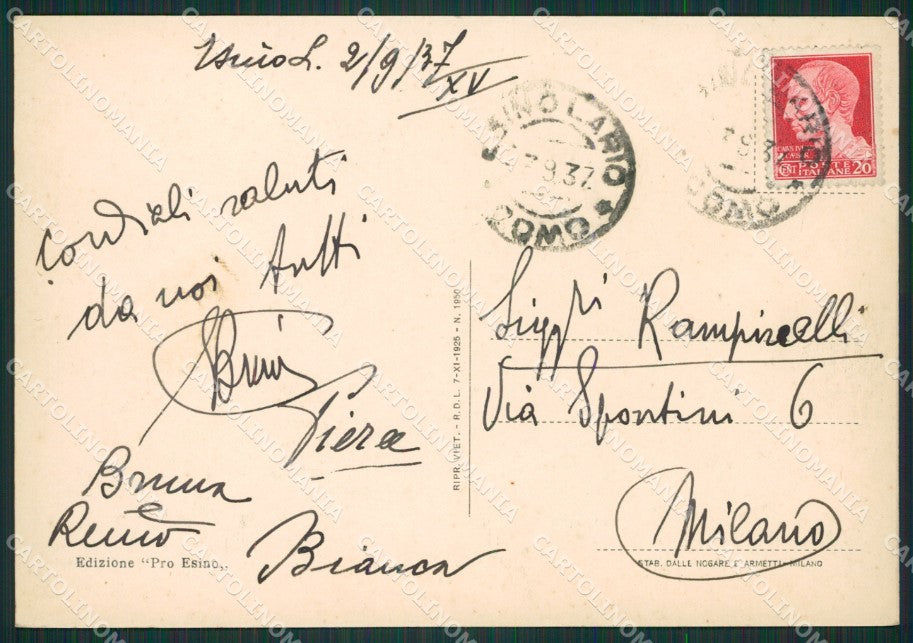 Esino L. 2/9/37
XV
cordiali saluti
da noi tutti
Piera
Bruna
e
Remo
Bianca
Edizione "Pro Esino„
RIPR. VIET. - R.D.L. 7-XI-1925 - N. 1950
ESINO LARIO
9.37
COMO
POSTE
ITALIANE
CENT 20
Sigg/ri Rampinelli
Via Spontini 6
Milano
STAB. DALLE NOGARE E ARMETTI - MILANO
CARTOLINOMANIA